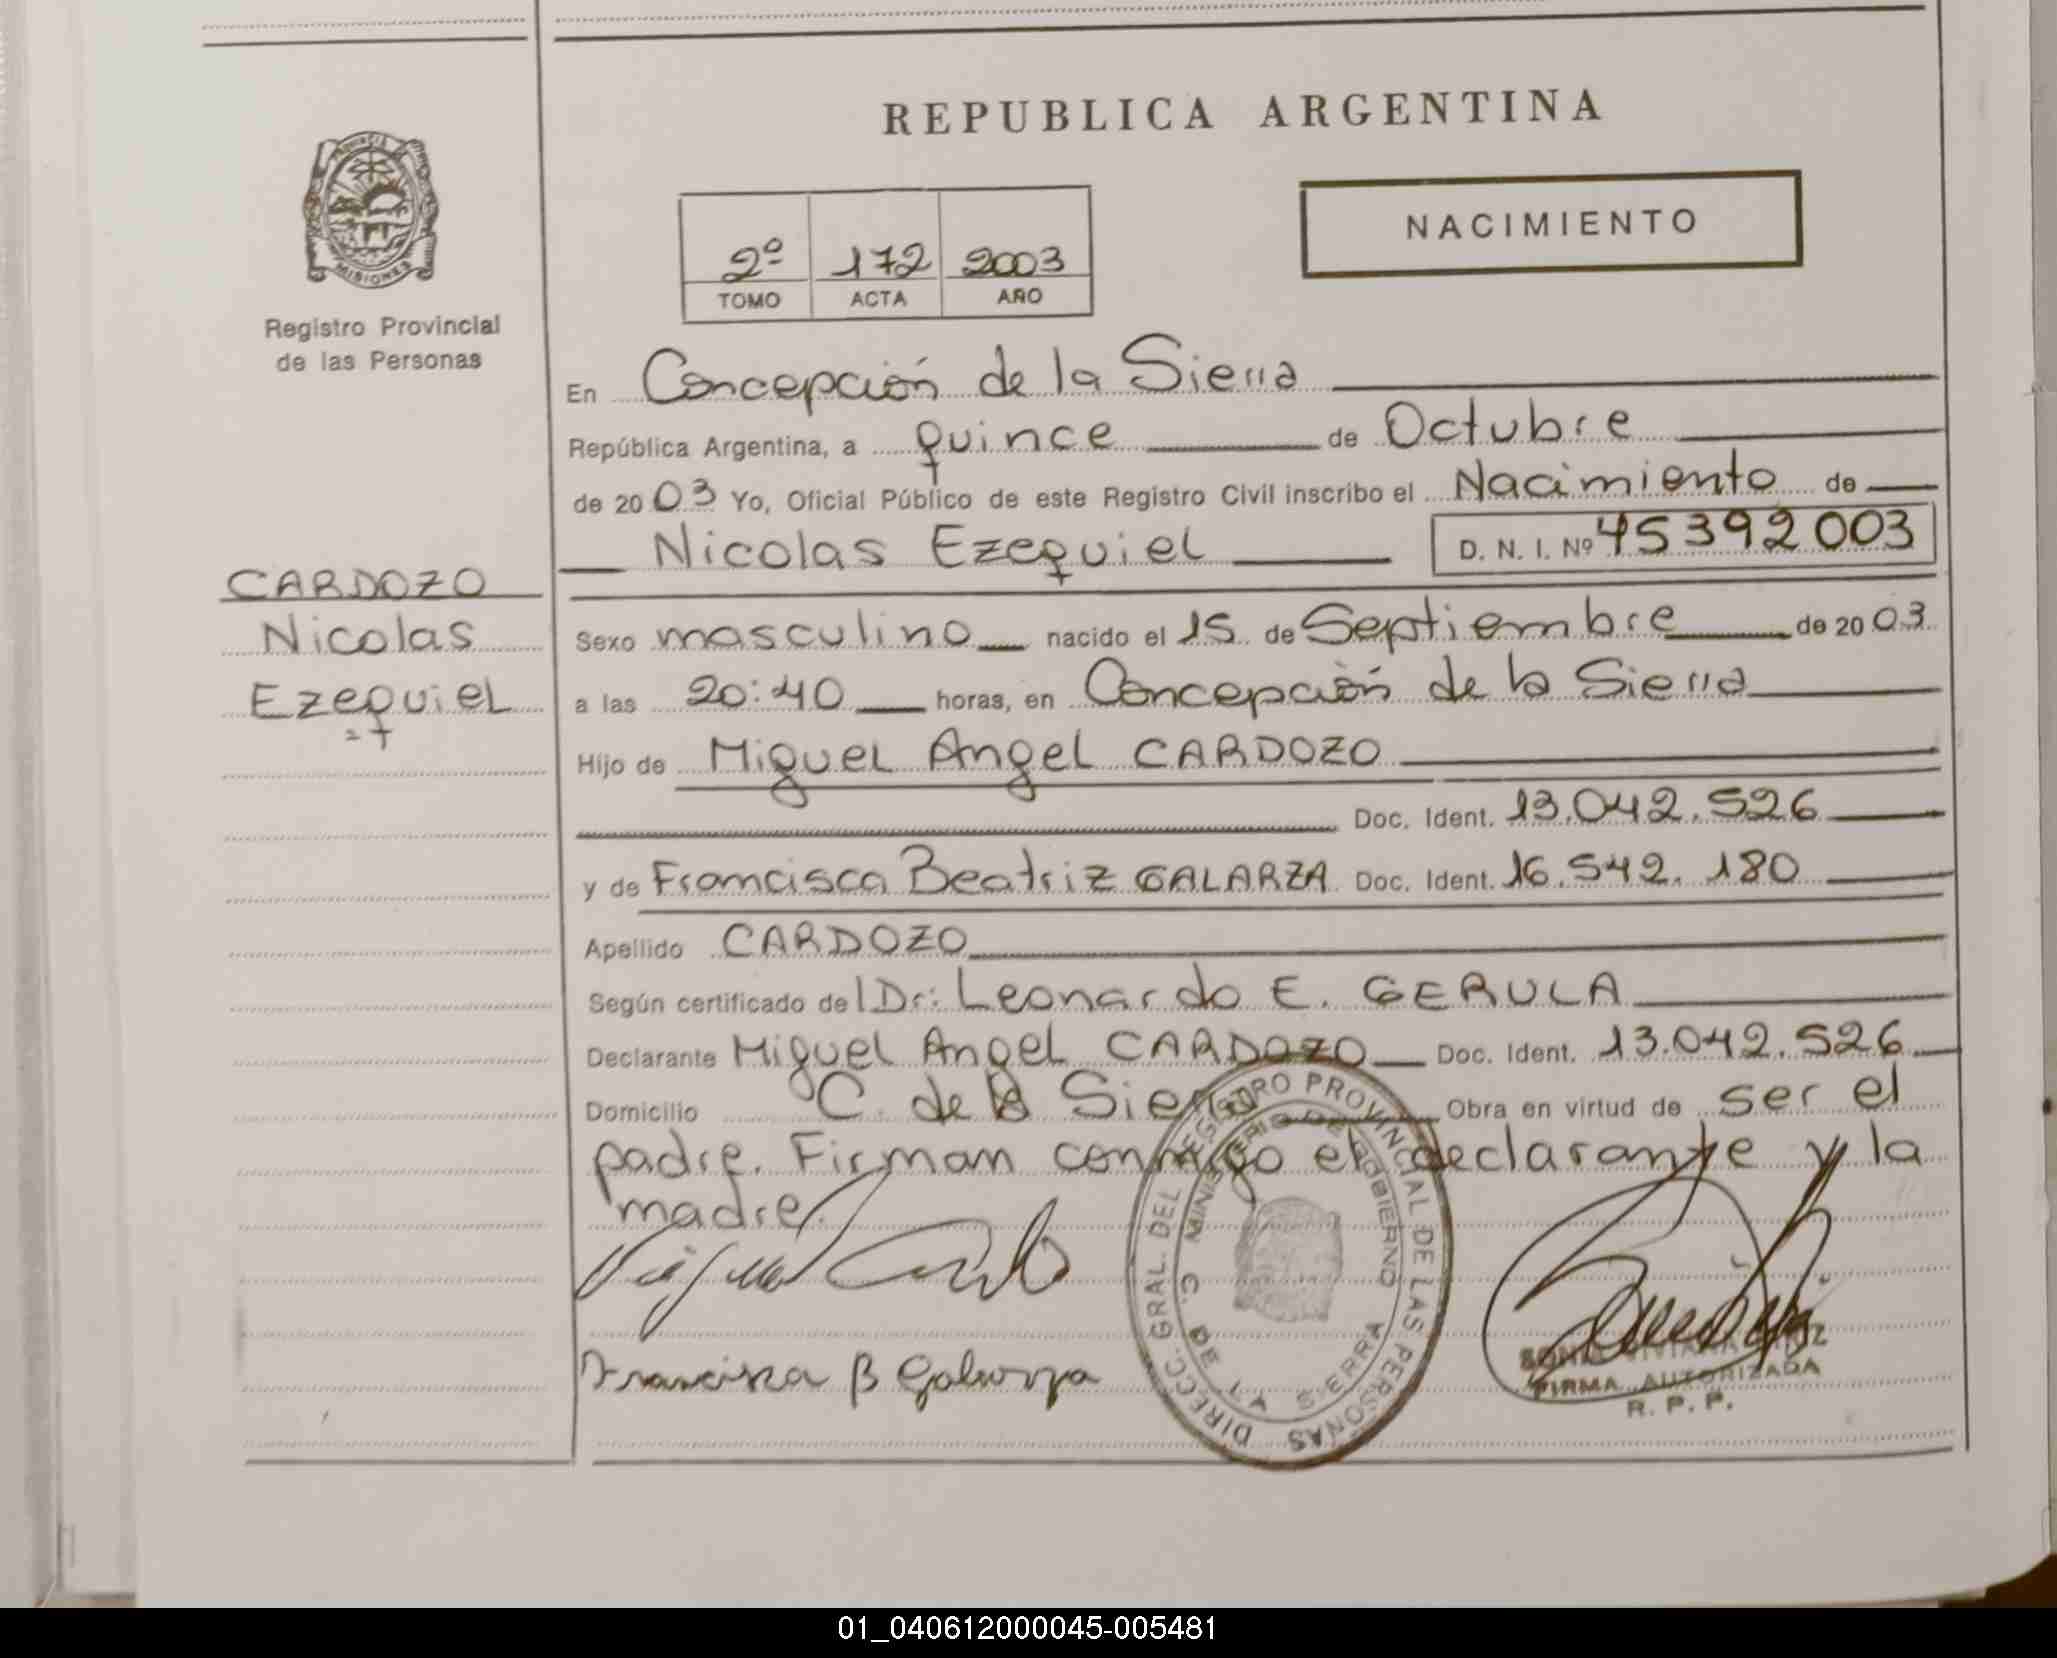 REPUBLICA ARGENTINA
NACIMIENTO
2º 172 2003
TOMO ACTA AÑO
PROVINCIA
MISIONES
Registro Provincial
de las Personas
CARDOZO
Nicolas
Ezequiel
En Concepción de la Sierra
República Argentina, a quince de Octubre
de 2003 Yo, Oficial Público de este Registro Civil inscribo el Nacimiento de
Nicolas Ezequiel D. N. I. Nº 45392003
Sexo masculino nacido el 15 de Septiembre de 2003
a las 20:40 horas, en Concepción de la Sierra
Hijo de Miguel Angel CARDOZO
Doc. Ident. 13.042.526
y de Francisca Beatriz GALARZA Doc. Ident. 16.542.180
Apellido CARDOZO
Según certificado del Dr: Leonardo E. GERULA
Declarante Miguel Angel CARDOZO Doc. Ident. 13.042.526
Domicilio C. de la Sierra Obra en virtud de ser el
padre. Firman conmigo el declarante y la
madre.
Francisca B Galarza
DIRECC. GRAL. DEL REGISTRO PROVINCIAL DE LAS PERSONAS
MINISTERIO DE GOBIERNO
C. DE LA SIERRA
FIRMA AUTORIZADA
R. P. P.
01_040612000045-005481